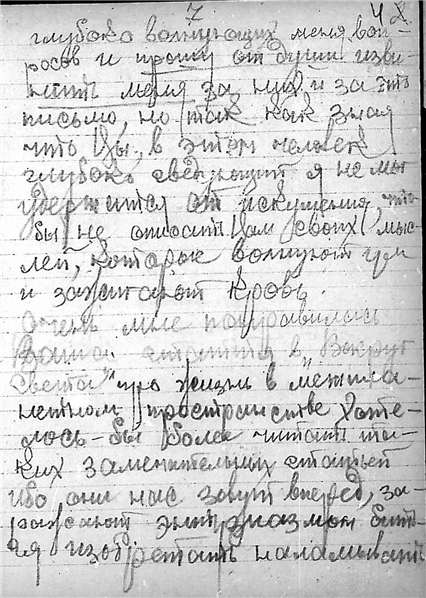 7 42
глубоко волнующих меня воп-
росов и прошу от души изви-
нить меня за них и за это
письмо, но так как зная
что Вы, в этом человек
глубоко сведующий я не мог
удержится от искушения, что
бы не описать Вам своих мыс-
лей, которые волнуют ум
и зажигают кровь.
Очень мне понравилась
Ваша статья в „Вокруг
Света" про жизнь в межпла-
нетном пространстве Хоте-
лось-бы более читать та-
ких замечательных статьей
ибо они нас зовут вперед, за-
ражают энтузиазмом
изобретать надламывать